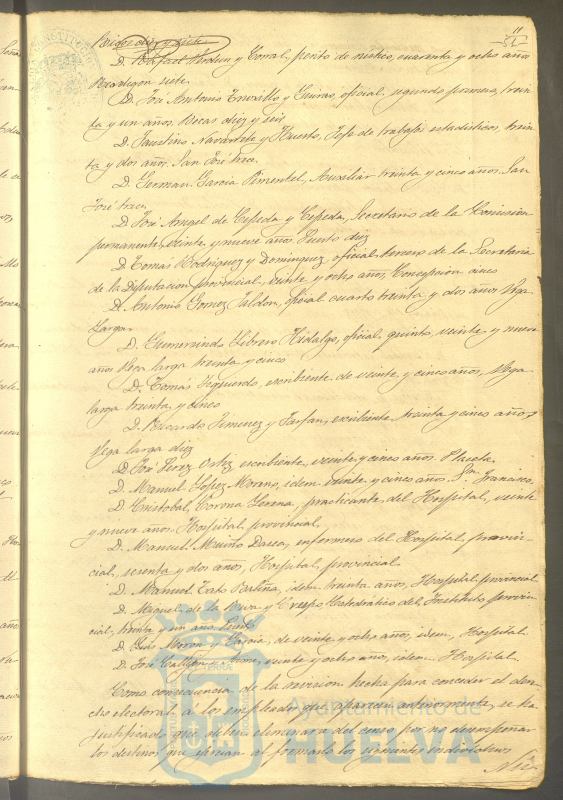 11
D. Rafael y Corral, perito de rústico, cuarenta y ocho años
siete.
D. José Antonio Truxillo y oficial segundo primero, trein-
ta y un años. Ricas diez y seis
D. Faustino Navarrete y Huerto, Jefe de trabajos estadísticos, trein-
ta y dos años. San José trece.
D. German Garcia Pimentel, Auxiliar treinta y cinco años, San
José trece.
D. José Angel de Cepeda y Cepeda, Secretario de la Comision
permanente, veinte y nueve años. Puerto diez
D. Tomás Rodriguez y Dominguez, oficial tercero de la Secretaria
de la Diputacion provincial, veinte y ocho años, Concepcion cinco
D. Antonio Gomez oficial cuarto treinta y dos años Vega
Larga.
D. Gumersindo Librero Hidalgo, oficial quinto, veinte y nueve
años Vega larga treinta y cinco
D. Tomás Izquierdo, escribiente de veinte y cinco años, Vega
larga treinta y cinco
D. Ricardo Jimenez y Farfan, escribiente treinta y cinco años,
Vega larga diez
D. José Perez Ortiz escribiente, veinte y cinco años. Placeta
D. Manuel Lopez Moreno, idem veinte y cinco años. Sn. Francisco.
D. Cristobal Corona practicante del Hospital, veinte
y nueve años. Hospital provincial.
D. Manuel enfermero del Hospital provin-
cial, sesenta y dos años, Hospital provincial
D. Manuel idem treinta años, Hospital provincial
D. de la y Crespo Catedrático del Instituto provin-
cial, treinta y un años. Puerto
D. Luis Moron y Garcia, de veinte y ocho años, idem, Hospital.
D. José veinte y ocho años, idem Hospital.
Como consecuencia de la revision hecha para conceder el dere-
cho electoral a los empleados que aparecen anteriormente, se ha
justificado que deben eliminarse del censo por no desempeñar
los destinos que ejercian al formarlo los siguientes individuos
Ayuntamiento de
HUELVA